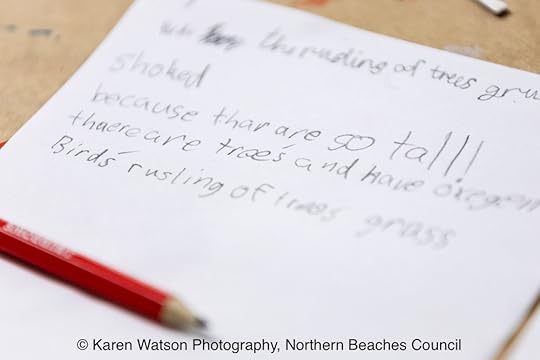 the rusling of trees gra
shoked
because thar are so tall!!
thaere are trees and have oxegen
Birds rusling of trees grass
© Karen Watson Photography, Northern Beaches Council